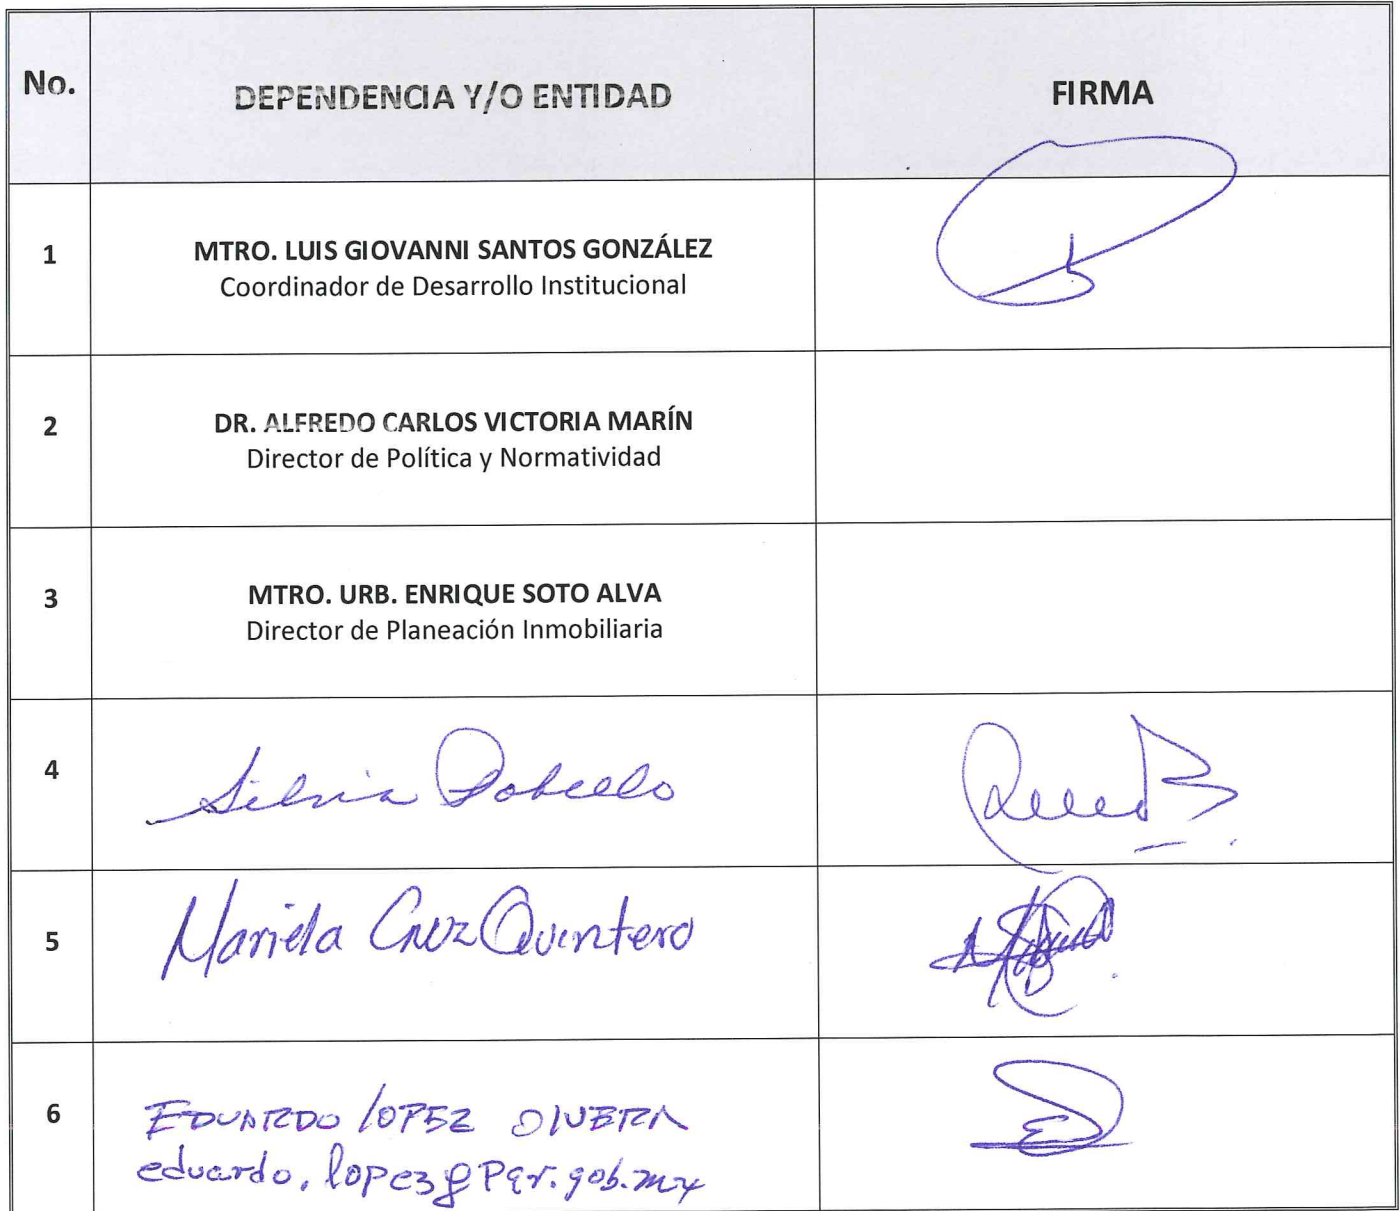 No. DEPENDENCIA Y/O ENTIDAD FIRMA
1 MTRO. LUIS GIOVANNI SANTOS GONZÁLEZ
Coordinador de Desarrollo Institucional
2 DR. ALFREDO CARLOS VICTORIA MARÍN
Director de Política y Normatividad
3 MTRO. URB. ENRIQUE SOTO ALVA
Director de Planeación Inmobiliaria
4 Silvia
5 Mariela Cruz Quintero
6 EDUARDO LOPEZ
eduardo.lopez@pgr.gob.mx